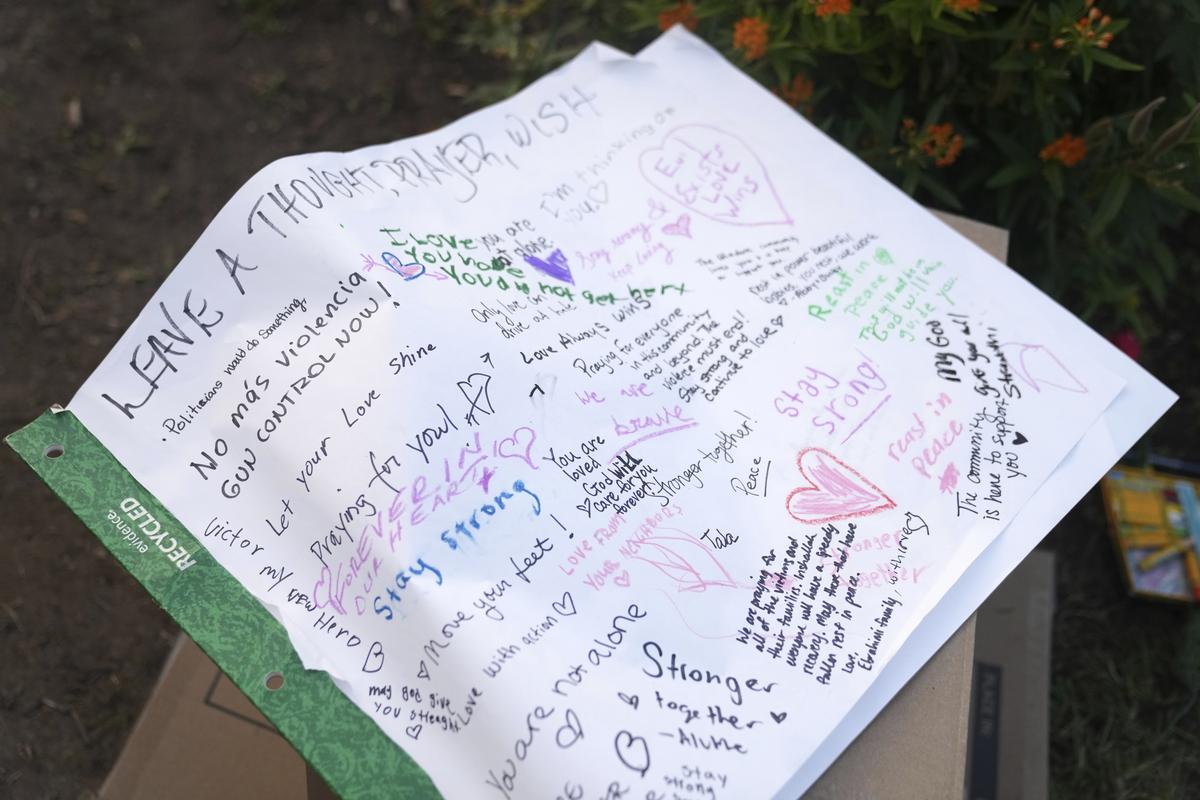 LEAVE A THOUGHT, PRAYER, WISH
I'm thinking of
you
Evil
Exists
LOVE
Wins
I LOVE
You
You are
not alone
You do not get
Stay strong &
keep loving
Politicians would do something.
No más violencia
GUN CONTROL NOW!
Only love
drive out
Love Always Wins
Praying for everyone
in this community
and beyond. The
violence must end!
Stay strong and
continue to love
Rest in
peace
God will
guide you
My God
give you all
Strength
The community
is here to support
you
Let your Love Shine
We are
brave
Stay
strong!
rest in
peace
Praying for you!
FOREVER IN
OUR HEART
You are
loved
God will
care for you
forever!
Stronger together!
Peace
Victor
my new
Hero
Stay strong
Move your feet!
LOVE FROM
YOUR NEIGHBORS
Stronger
together
We are praying for
all of the victims and
their families. Inshallah
everyone will have a speedy
recovery. May those that have
fallen rest in peace.
Love,
Ebrahimi family
may God give
you strenght
Love with action
You are not alone
Stronger
together
stay
strong
evidence.
RECYCLED